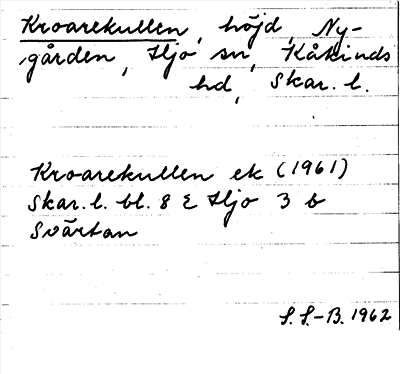 Kroarekullen, höjd, Ny-
gården, Hjo sn, Kåkinds
hd, Skar. l.
Kroarekullen ek (1961)
Skar. l. bl. 8 E Hjo 3 b
Svärtan
S. S.-B. 1962